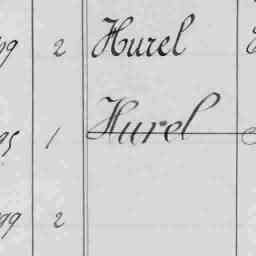 99 2 Hurel
95 1 Hurel
99 2